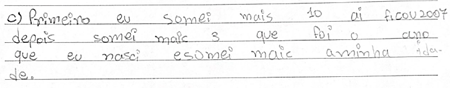 c) Primeiro eu somei mais 10 ai ficou 2007
depois somei maic 3 que foi o ano
que eu nasci e somei maic aminha ida-
de.